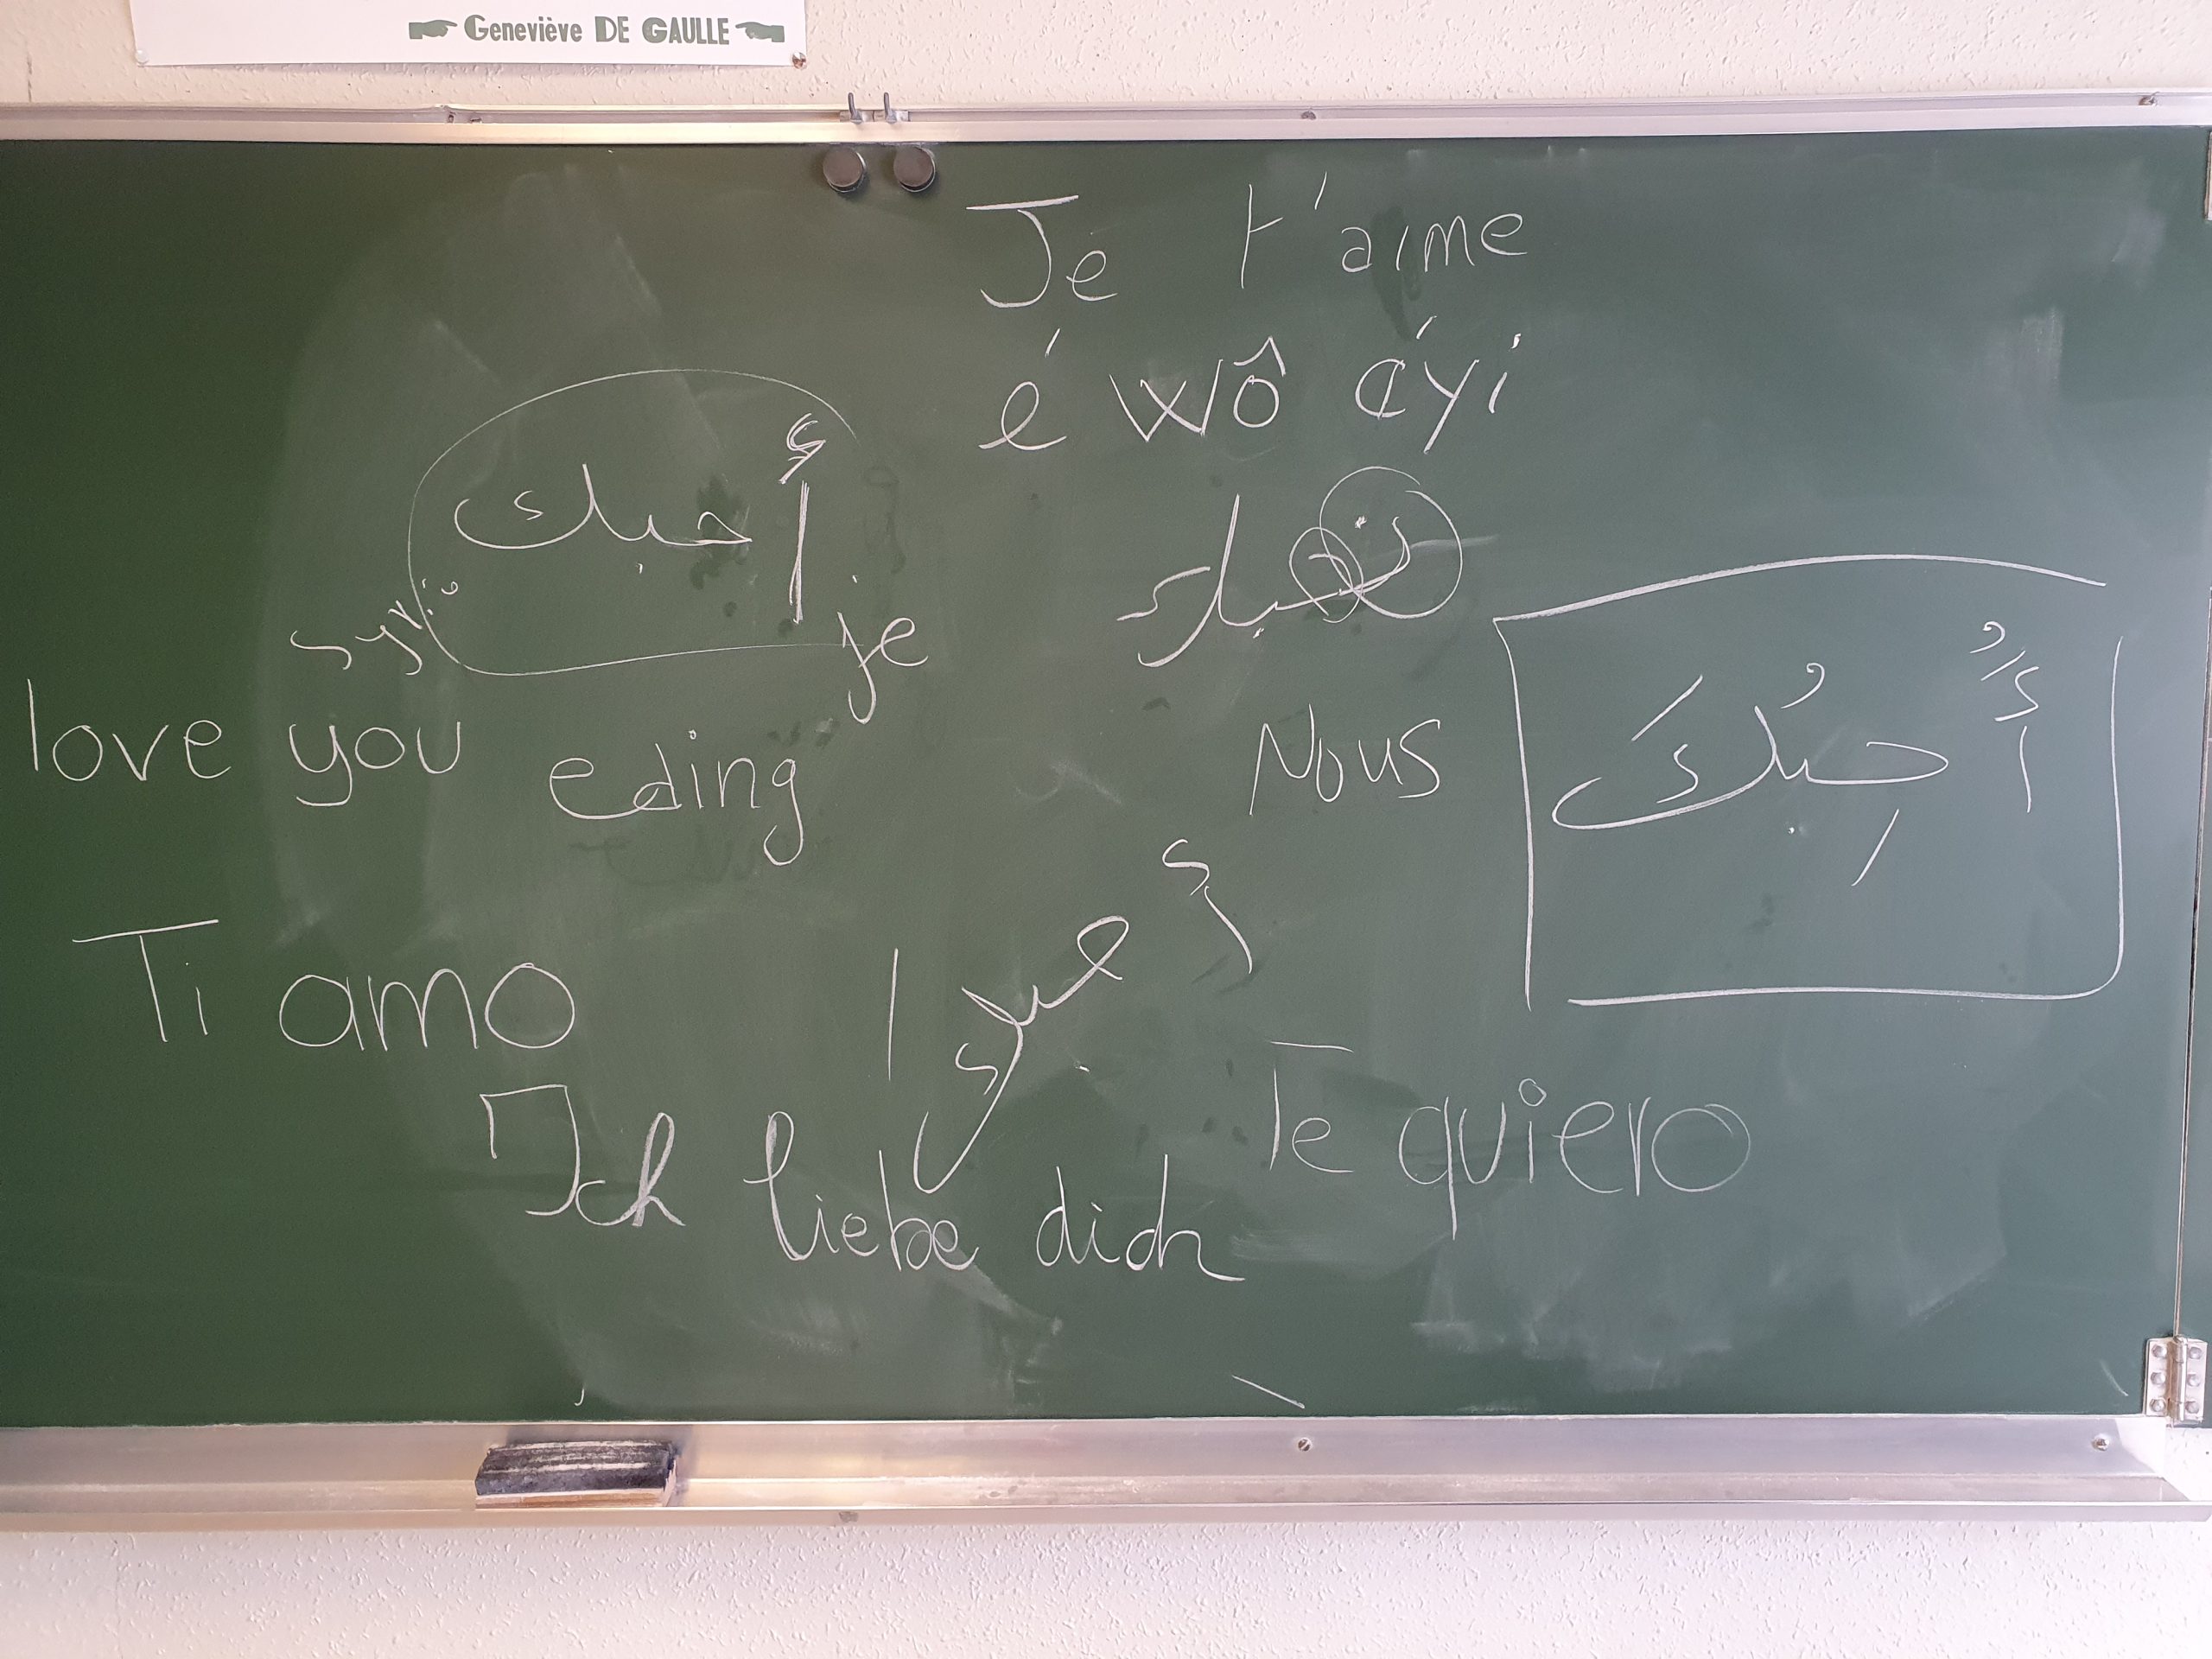 Geneviève DE GAULLE
Je t'aime
é wô áyi
أحبك
je
love you
eding
Nous
أُحِبُكَ
Ti amo
Te quiero
Ich liebe dich